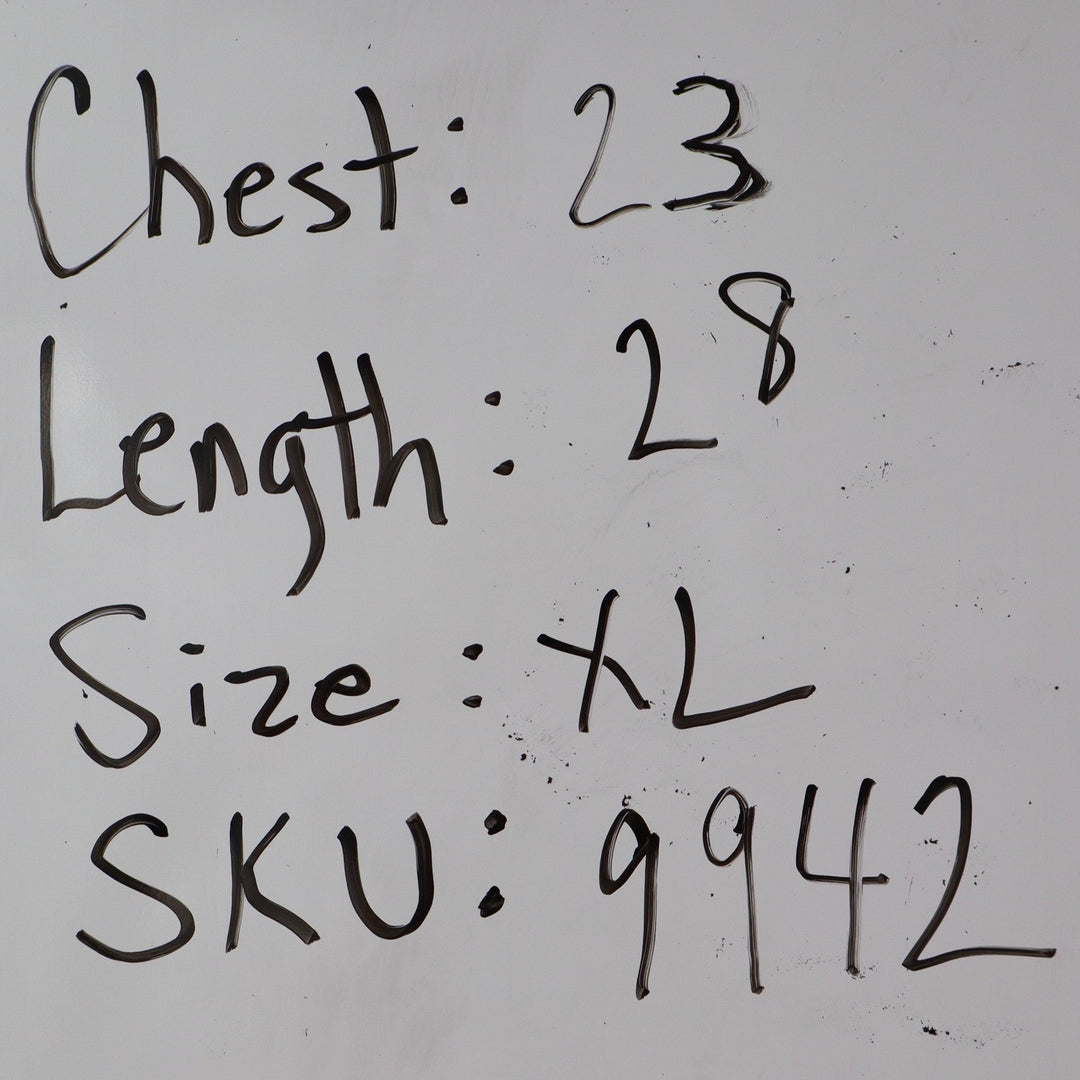 Chest: 23
Length: 28
Size: XL
SKU: 9942